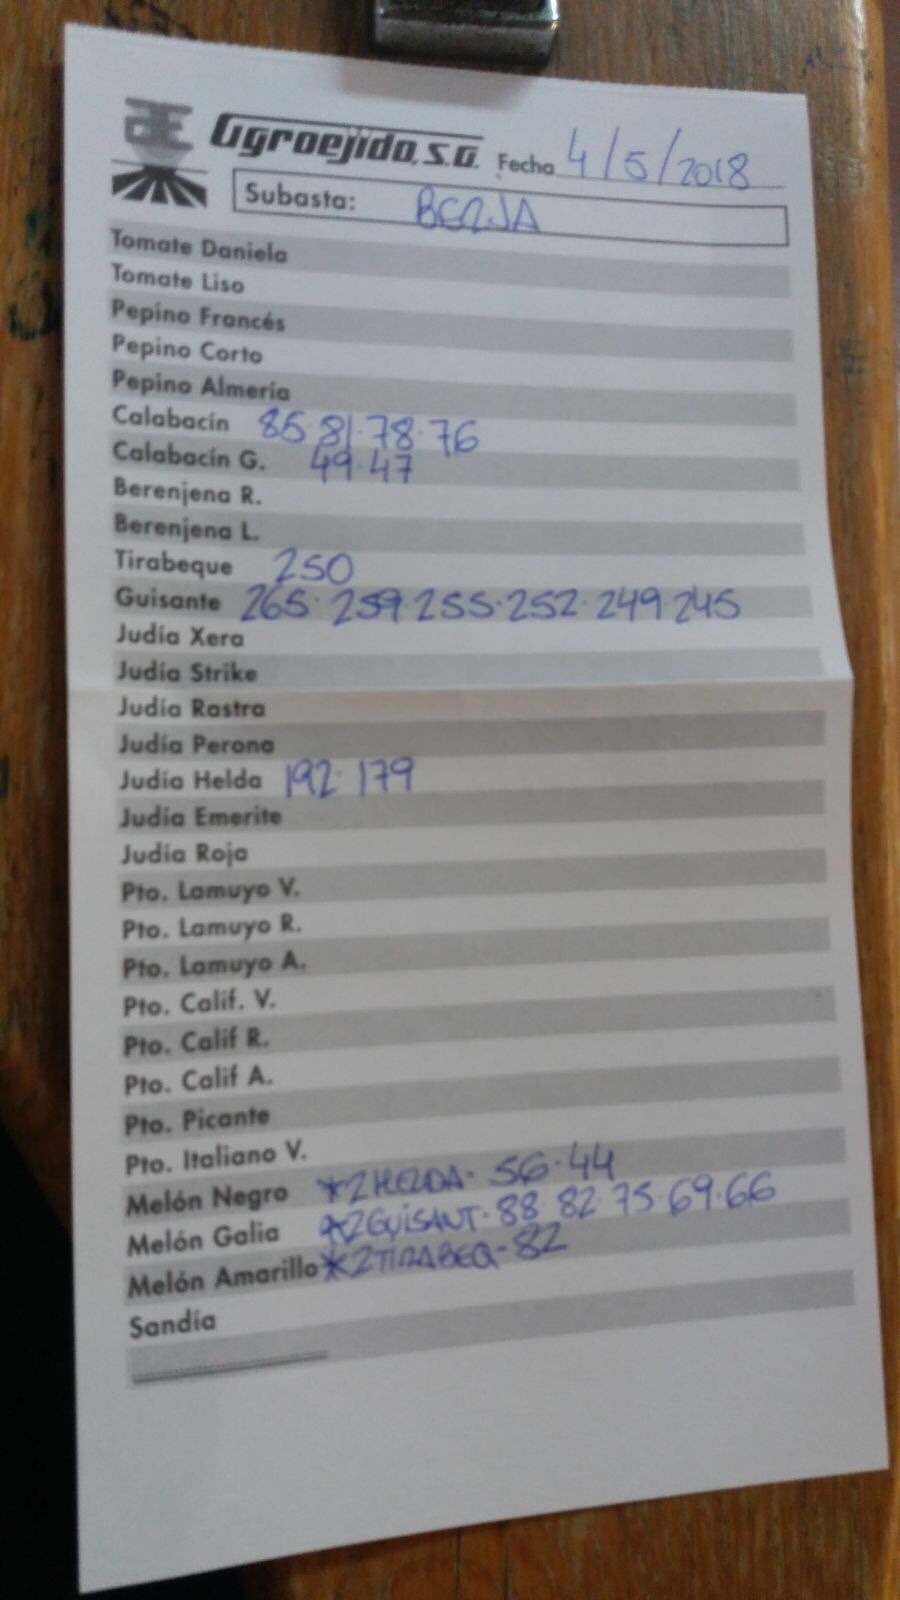 Agroejido, S.A. Fecha 4/5/2018
Subasta: BERJA
Tomate Daniela
Tomate Liso
Pepino Francés
Pepino Corto
Pepino Almería
Calabacín 85·81·78·76
Calabacín G. 49·47
Berenjena R.
Berenjena L.
Tirabeque 250
Guisante 265·259·255·252·249·245
Judía Xera
Judía Strike
Judía Rastra
Judía Perona
Judía Helda 192·179
Judía Emerite
Judía Roja
Pto. Lamuyo V.
Pto. Lamuyo R.
Pto. Lamuyo A.
Pto. Calif. V.
Pto. Calif R.
Pto. Calif A.
Pto. Picante
Pto. Italiano V.
Melón Negro *2HELDA- 56·44
Melón Galia *2GUISANT·88 82 75·69·66
Melón Amarillo *2TIRABEQ-82
Sandía